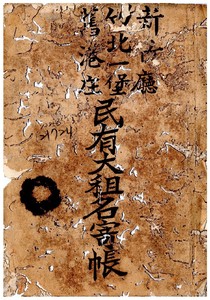 新竹廳
竹北一堡
舊港庄
民有大租名寄帳